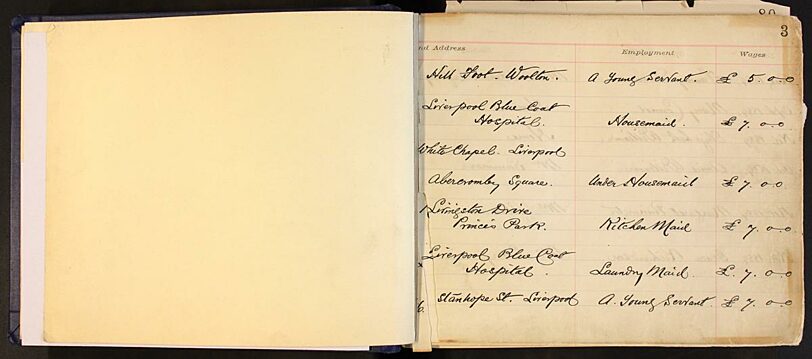 3
nd Address Employment Wages
Hill Foot. Woolton. A Young Servant. £ 5. 0.0
Liverpool Blue Coat
Hospital. Housemaid. £ 7. 0.0
White Chapel. Liverpool
Abercromby Square. Under Housemaid £ 7. 0.0
Livingston Drive
Princes Park. Kitchen Maid £ 7. 0.0
Liverpool Blue Coat
Hospital. Laundry Maid. £. 7. 0.0
Stanhope St. Liverpool A. Young Servant. £ 7. 0.0